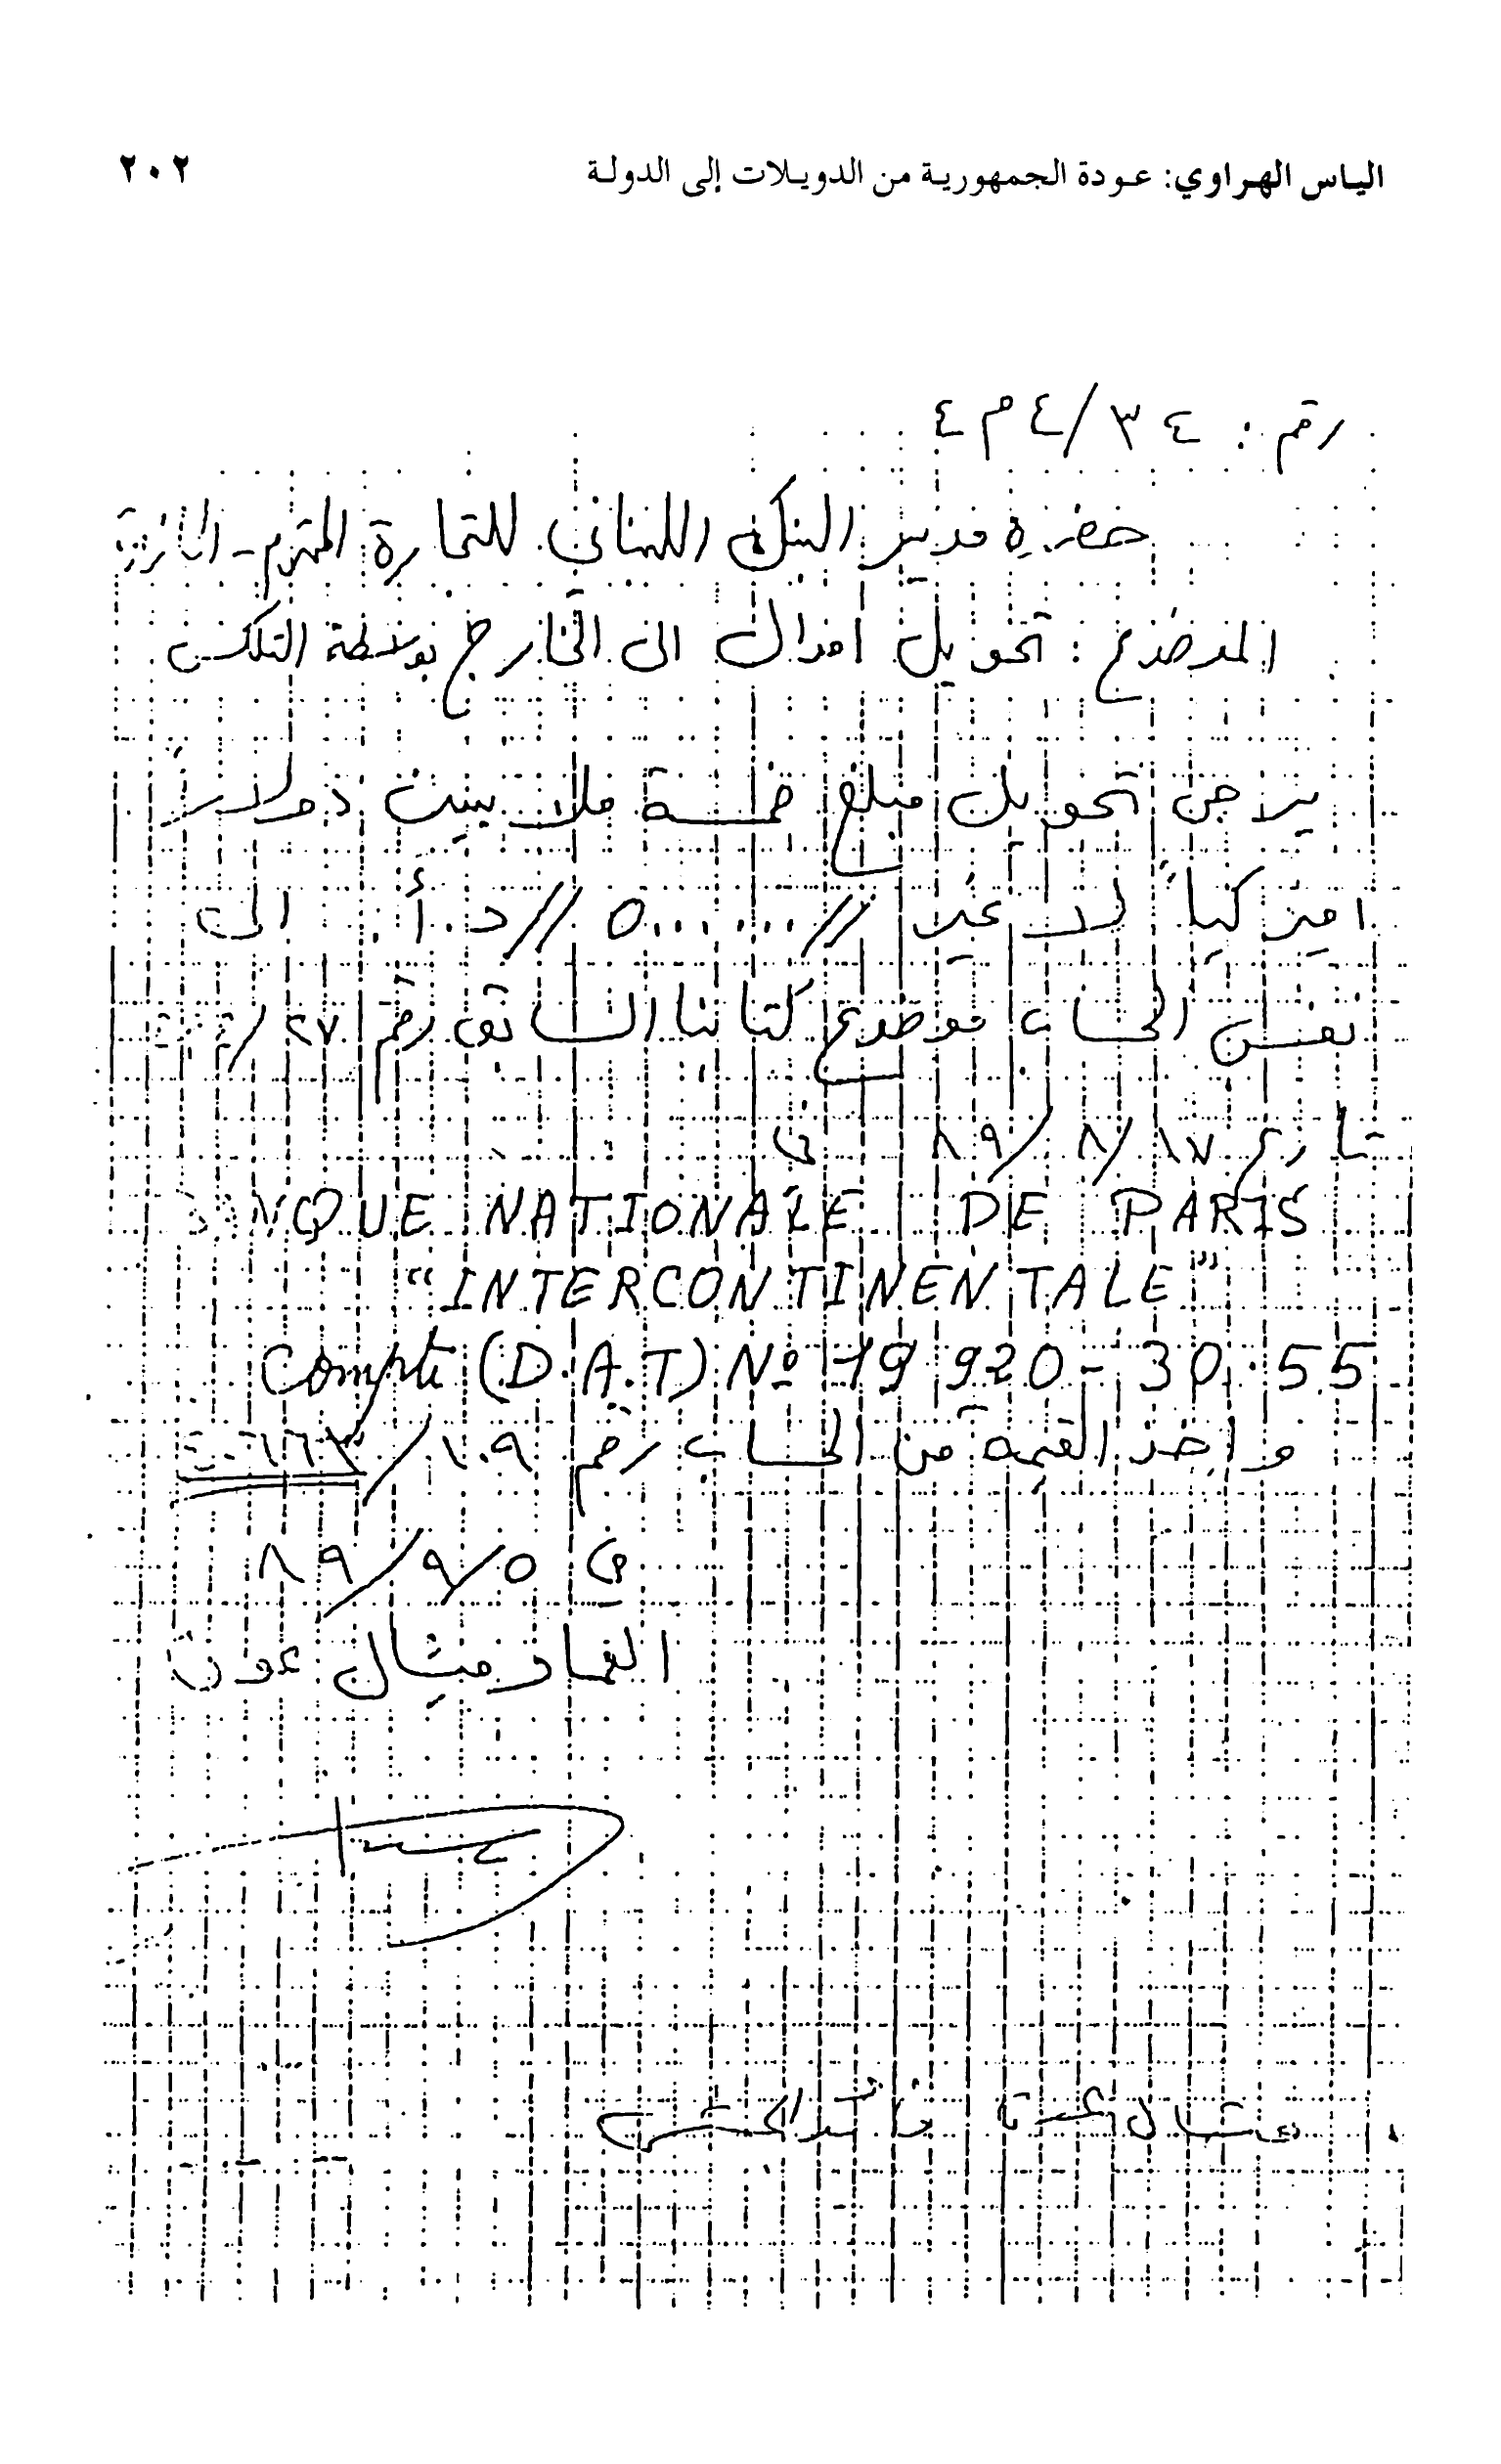 الياس الهراوي: عودة الجمهورية من الدويلات إلى الدولة ٢٠٢
رقم : ٣٤/ ٤ م ٤
حضرة مدير البنك اللبناني للتجارة المحترم -
الموضوع : تحويل اموال الى الخارج بواسطة التلكس
يرجى تحويل مبلغ خمسة ملايين دولار
اميركياً لا غير // ٥٠٠٠٠٠٠ // د.أ. الى
نفس الحساب موضوع كتابنا السابق رقم ٢٧/
تاريخ ١٧/ ٨/ ٨٩ في
BANQUE NATIONALE DE PARIS
"INTERCONTINENTALE"
Compte (D.A.T) Nº 19 920 - 30.55
واخذ القيمة من الحساب رقم ١٠٩/
في ٥/ ٩/ ٨٩
العماد ميشال عون
ميشال عون قائد الجيش